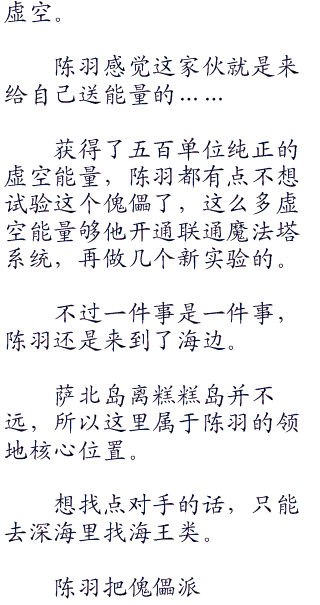 虚空。
陈羽感觉这家伙就是来
给自己送能量的……
获得了五百单位纯正的
虚空能量，陈羽都有点不想
试验这个傀儡了，这么多虚
空能量够他开通联通魔法塔
系统，再做几个新实验的。
不过一件事是一件事，
陈羽还是来到了海边。
萨北岛离糕糕岛并不
远，所以这里属于陈羽的领
地核心位置。
想找点对手的话，只能
去深海里找海王类。
陈羽把傀儡派